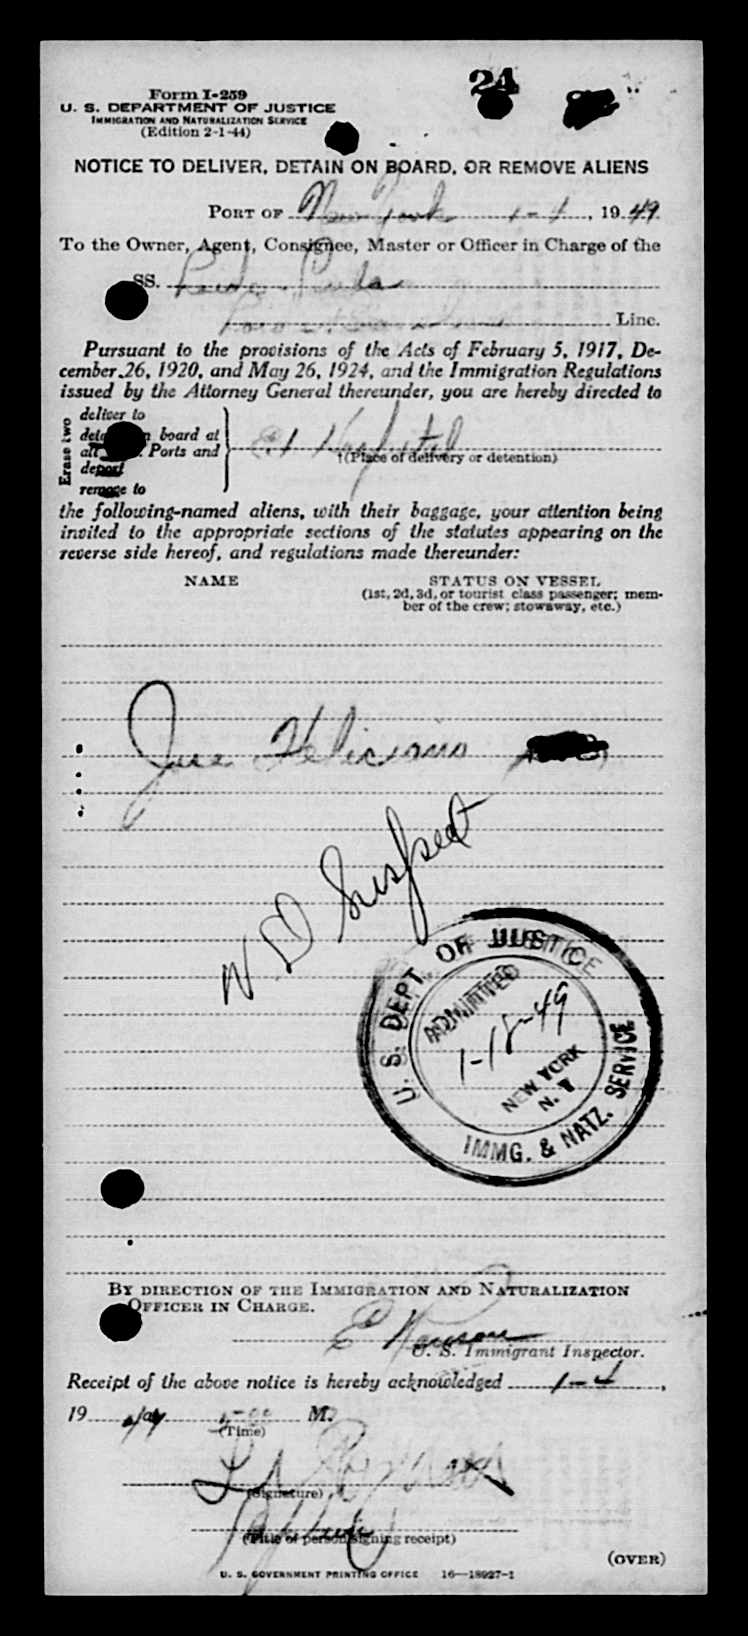 24
Form I-259
U. S. DEPARTMENT OF JUSTICE
IMMIGRATION AND NATURALIZATION SERVICE
(Edition 2-1-44)
NOTICE TO DELIVER, DETAIN ON BOARD, OR REMOVE ALIENS
PORT OF New York 1-4, 1949
To the Owner, Agent, Consignee, Master or Officer in Charge of the
SS.
Line.
Pursuant to the provisions of the Acts of February 5, 1917, De-
cember 26, 1920, and May 26, 1924, and the Immigration Regulations
issued by the Attorney General thereunder, you are hereby directed to
Erase two
deliver to
board at
Ports and
deport
remove to
E.I. Hospital
(Place of delivery or detention)
the following-named aliens, with their baggage, your attention being
invited to the appropriate sections of the statutes appearing on the
reverse side hereof, and regulations made thereunder:
NAME STATUS ON VESSEL
(1st, 2d, 3d, or tourist class passenger; mem-
ber of the crew; stowaway, etc.)
Jose Feliciano
VD Suspect
U. S. DEPT. OF JUSTICE
ADMITTED
1-18-49
NEW YORK
N. Y
IMMG. & NATZ. SERVICE
BY DIRECTION OF THE IMMIGRATION AND NATURALIZATION
OFFICER IN CHARGE.
U. S. Immigrant Inspector.
Receipt of the above notice is hereby acknowledged 1-4,
19 M.
(Time)
(Signature)
(Title of person signing receipt)
(OVER)
U. S. GOVERNMENT PRINTING OFFICE 16—18927-1